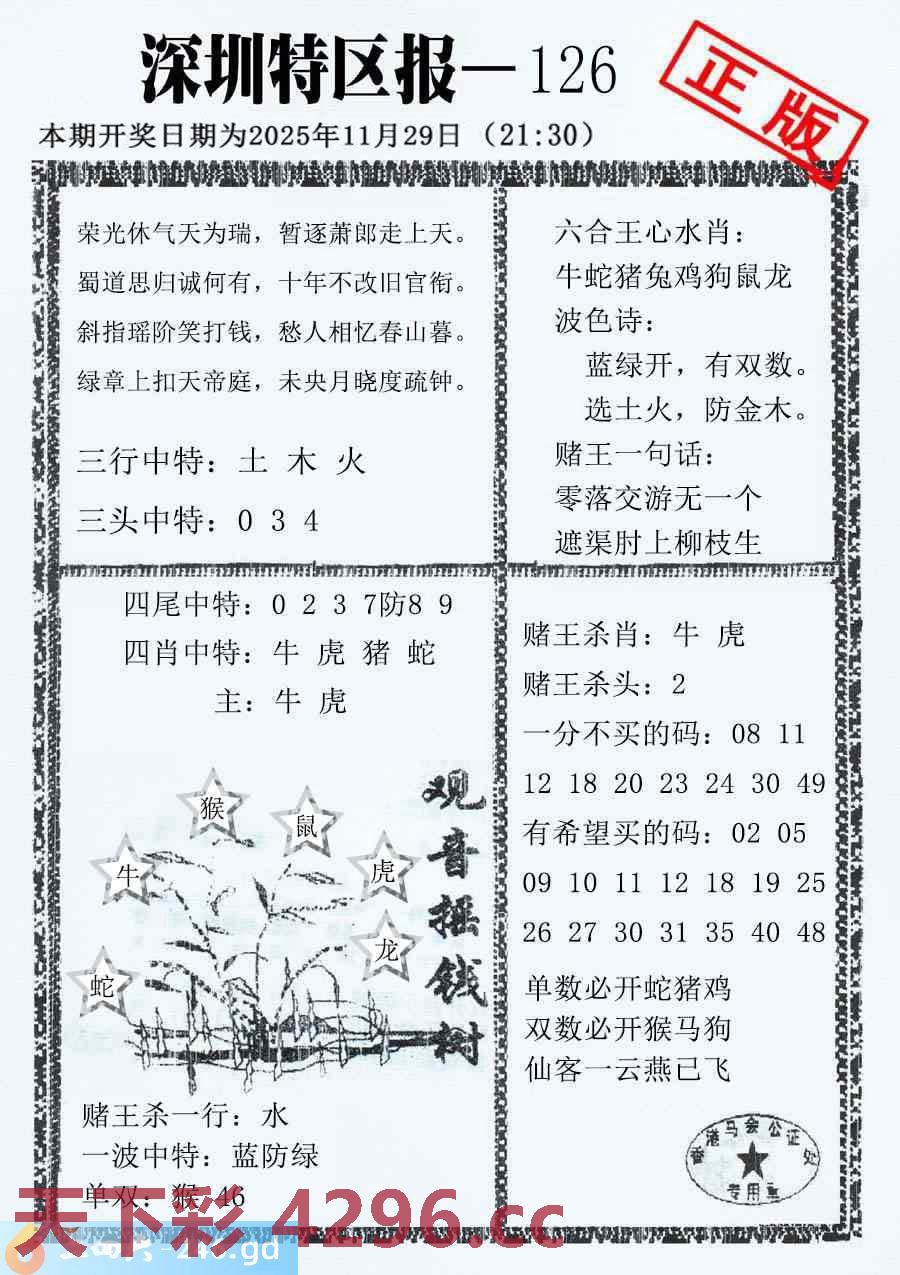 深圳特区报一126
正版
本期开奖日期为2025年11月29日（21:30）
荣光休气天为瑞，暂逐萧郎走上天。
蜀道思归诚何有，十年不改旧官衔。
斜指瑶阶笑打钱，愁人相忆春山暮。
绿章上扣天帝庭，未央月晓度疏钟。
三行中特：土 木 火
三头中特：0 3 4
六合王心水肖：
牛蛇猪兔鸡狗鼠龙
波色诗：
蓝绿开，有双数。
选土火，防金木。
赌王一句话：
零落交游无一个
遮渠肘上柳枝生
四尾中特：0 2 3 7防8 9
四肖中特：牛 虎 猪 蛇
主：牛 虎
观音摇钱树
猴
鼠
牛
虎
龙
蛇
赌王杀一行：水
一波中特：蓝防绿
单双：猴 46
赌王杀肖：牛 虎
赌王杀头：2
一分不买的码：08 11
12 18 20 23 24 30 49
有希望买的码：02 05
09 10 11 12 18 19 25
26 27 30 31 35 40 48
单数必开蛇猪鸡
双数必开猴马狗
仙客一云燕已飞
香港马会公证处
专用章
天下彩 4296.cc
246.gd